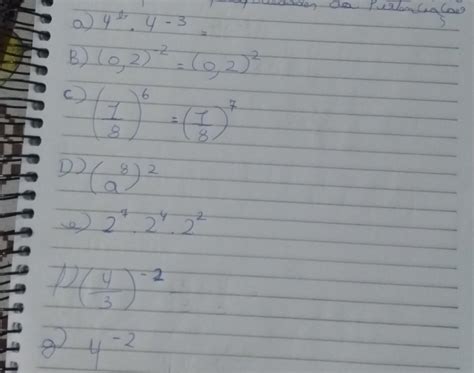 da Potenciação
a) 4² . 4 -³ =
B) (0,2)⁻² = (0,2)²
c) (7/8)⁶ = (7/8)⁷
D) (a⁸)²
e) 2⁷ . 2⁴ . 2²
f) (4/3)⁻²
g) 4⁻²